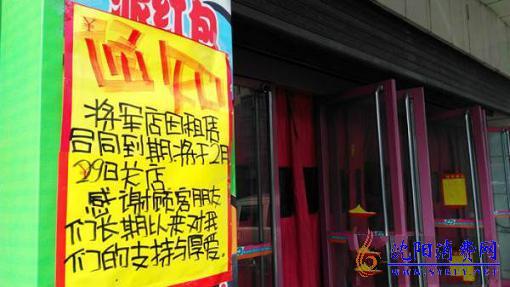 派红包
通知
将军店因租店
合同到期.将于2月
29日关店
感谢顾客朋友
们长期以来对我
们的支持与厚爱.
沈阳消费网